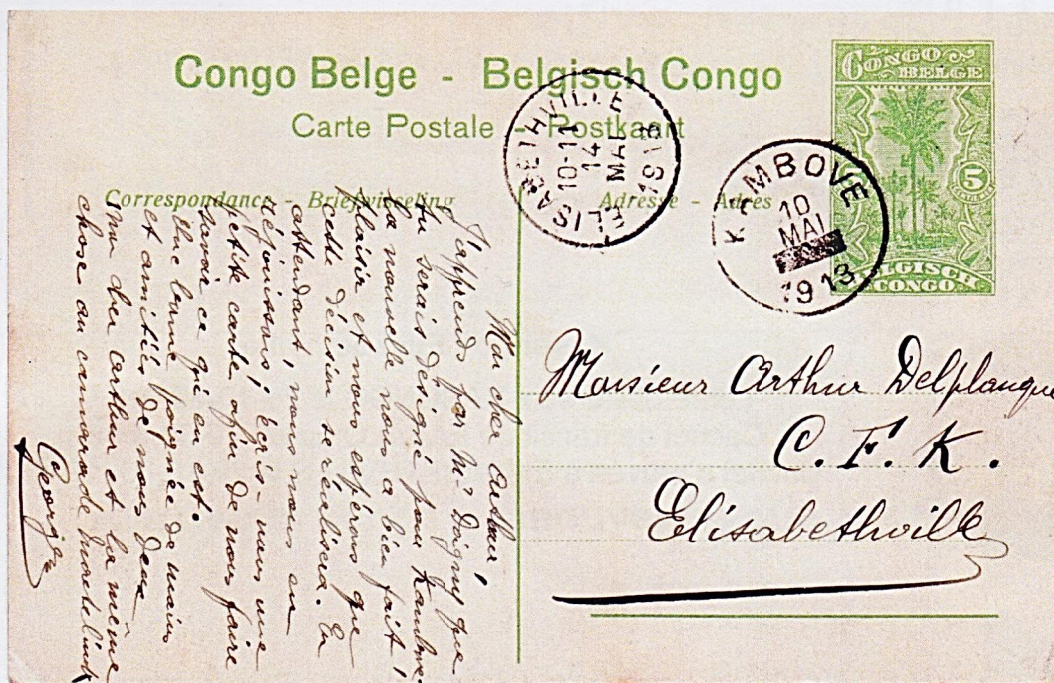 Congo Belge - Belgisch Congo
Carte Postale - Postkaart
CONGO
BELGE
5
BELGISCH
CONGO
ELISABETHVILLE
10-11
14
MAI
1913
KAMBOVE
10
MAI
1913
Correspondance - Briefwisseling
Adresse - Adres
Mon cher Arthur,
J'apprends par Mr Dagny que
tu serais désigné pour Kambove.
La nouvelle nous a bien fait
plaisir et nous espérons que
cette décision se réalisera. En
attendant, nous nous en
réjouissons; écris-nous une
petite carte afin de nous faire
savoir ce qui en est.
Une bonne poignée de mains
et amitiés de nous deux
mon cher Arthur et la même
chose au camarade
George
Monsieur Arthur Delplanque
C. F. K.
Elisabethville